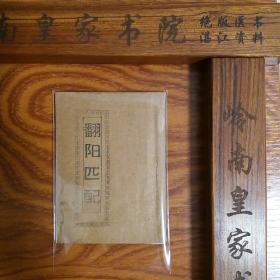 南皇家书院
绝版医书
湛江资料
翻阳匹配
岭南皇家书